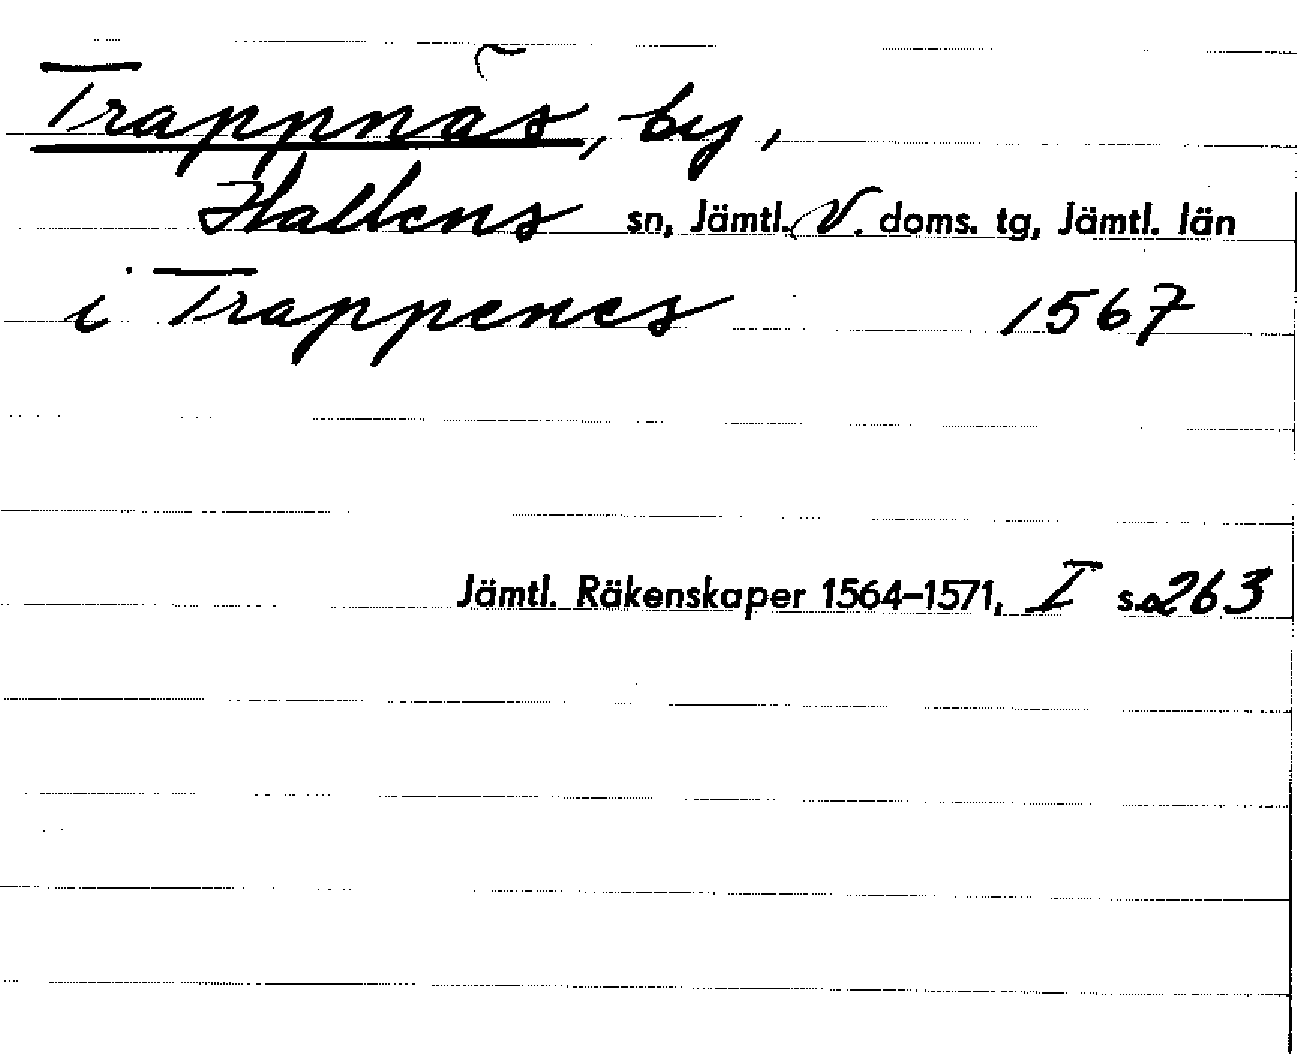 Trappnäs, by,
Hallens sn, Jämtl. V. doms. tg, Jämtl. län
i Trappenes 1567
Jämtl. Räkenskaper 1564-1571, I s. 263